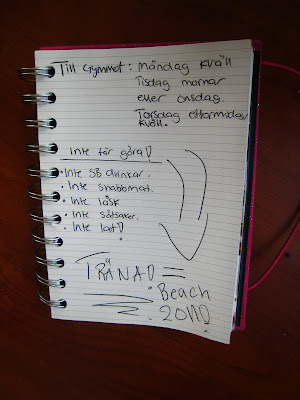 Till Gymmet: måndag kväll
Tisdag mornar
eller onsdag
Torsdag eftermidag/
kväll.
Inte får göra!
· Inte SB drinkar.
· Inte snabbmat.
· Inte läsk
· Inte sötsaker.
· Inte lat!
TRÄNA! =
Beach
2011!